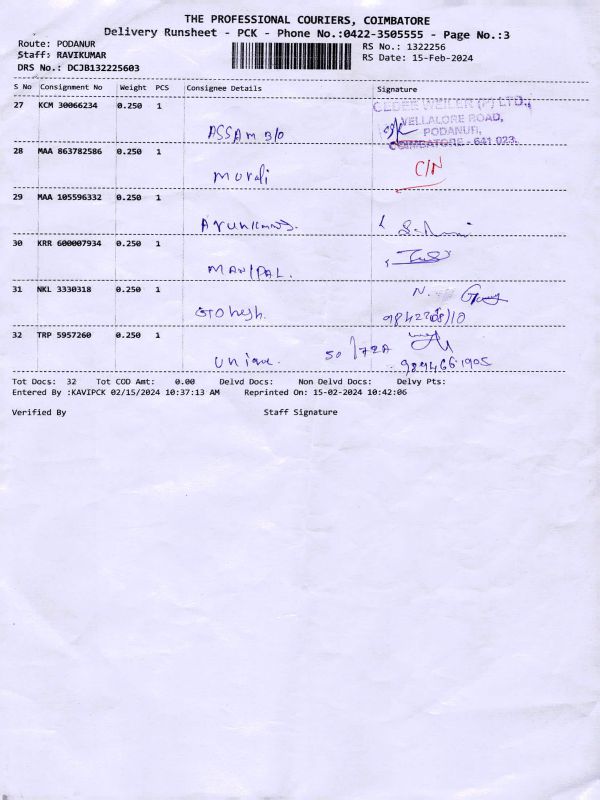 THE PROFESSIONAL COURIERS, COIMBATORE
Delivery Runsheet - PCK - Phone No.:0422-3505555 - Page No.:3
Route: PODANUR
RS No.: 1322256
Staff: RAVIKUMAR
RS Date: 15-Feb-2024
DRS No.: DCJB132225603
S No Consignment No Weight PCS Consignee Details Signature
27 KCM 30066234 0.250 1
(P) LTD.,
VELLALORE ROAD,
PODANUR,
COIMBATORE - 641 023.
ASSAM B/O
28 MAA 863782586 0.250 1
C/N
Murali
29 MAA 105596332 0.250 1
30 KRR 600007934 0.250 1
MANIPAL.
31 NKL 3330318 0.250 1
N.
32 TRP 5957260 0.250 1
Unique. 50/72A
Tot Docs: 32 Tot COD Amt: 0.00 Delvd Docs: Non Delvd Docs: Delvy Pts:
Entered By :KAVIPCK 02/15/2024 10:37:13 AM Reprinted On: 15-02-2024 10:42:06
Verified By Staff Signature